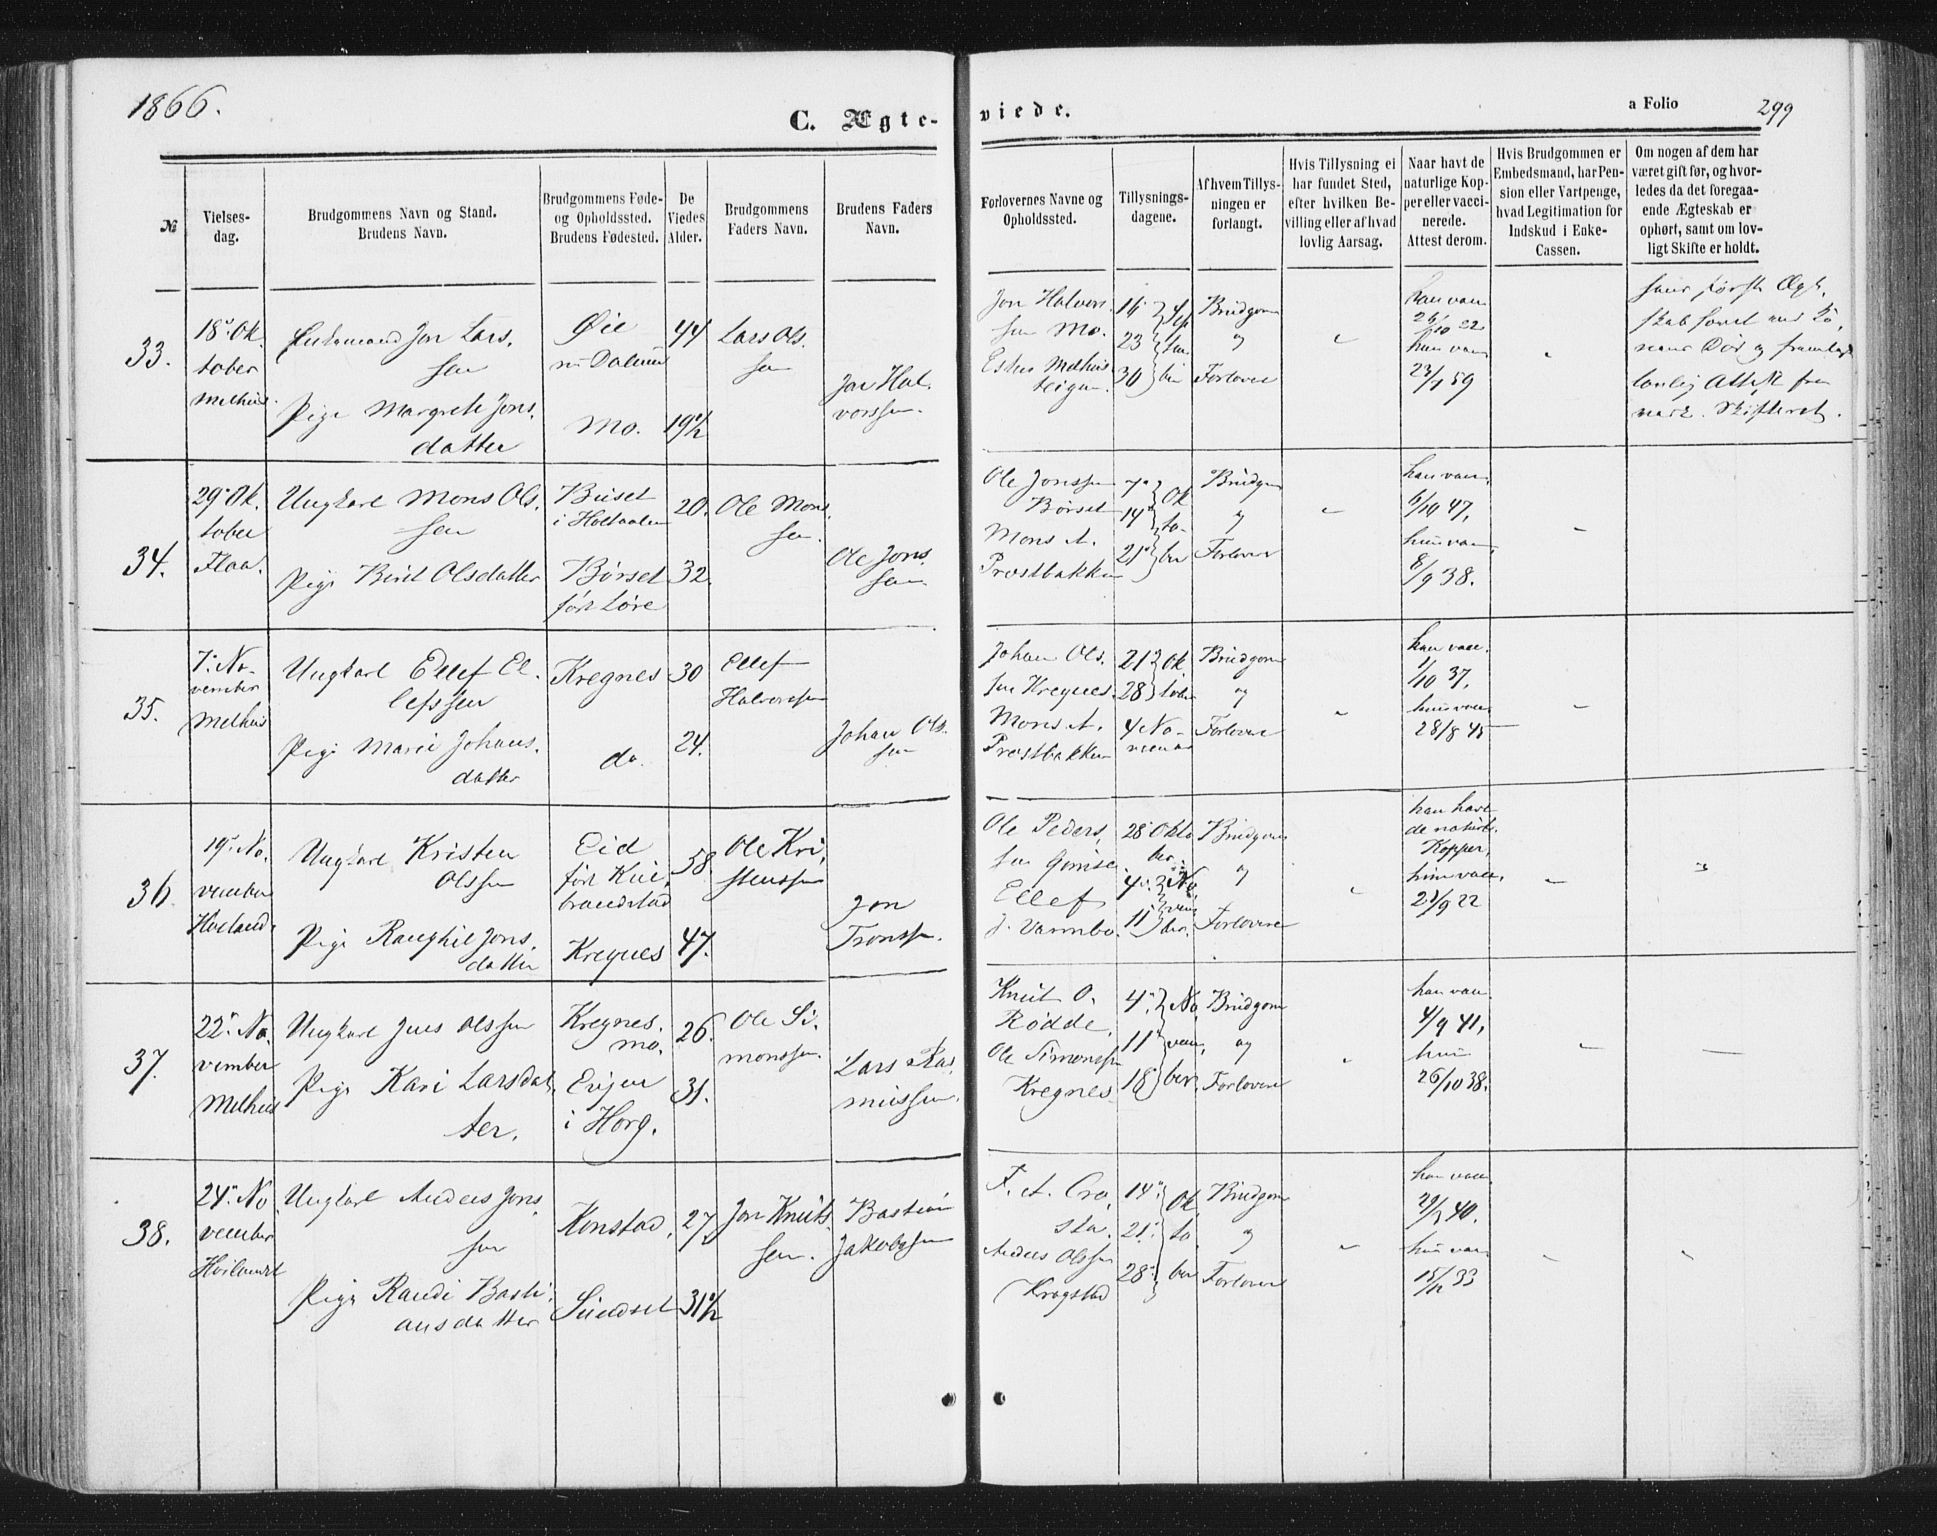 1866.
C. Ægte-
viede.
a Folio 299
№
Vielses-
dag.
Brudgommens Navn og Stand.
Brudens Navn.
Brudgommens Føde-
og Opholdssted.
Brudens Fødested.
De
Viedes
Alder.
Brudgommens
Faders Navn.
Brudens Faders
Navn.
Forlovernes Navne og
Opholdssted.
Tillysnings-
dagene.
Af hvem Tillys-
ningen er
forlangt.
Hvis Tillysning ei
har fundet Sted,
efter hvilken Be-
villing eller af hvad
lovlig Aarsag.
Naar havt de
naturlige Kop-
per eller vacci-
nerede.
Attest derom.
Hvis Brudgommen er
Embedsmand, har Pen-
sion eller Vartpenge,
hvad Legitimation for
Indskud i Enke-
Cassen.
Om nogen af dem har
været gift før, og hvor-
ledes da det foregaa-
ende Ægteskab er
ophørt, samt om lov-
ligt Skifte er holdt.
33.
18de Ok-
tober
Melhus.
Enkemand Jon Lars-
sen
Pige Margrete Jons-
datter
Øie
Mo.
44
19½
Lars Ols-
sen
Jon Hal-
vorssen.
Jon Halvors-
sen Mo.
Esten Melhus
16
23
30
Sep
tem
ber
Brudgom
og
Forlovere
han vacc.
26/10 22
hun vacc.
23/7 59
hans første Ægt.
skab hævet ved Ko-
nens Død og fremlagt
lovlig Attest fra
vedk. Skifteret.
34.
29de Ok-
tober
Flaa.
Ungkarl Mons Ols-
sen
Pige Berit Olsdatter
Buset
i Holtaalen
Børset
født Løre
20.
32.
Ole Mons-
sen.
Ole Jons-
sen
Ole Jonssen
Børset
Mons A.
Prestbakken
7de
14de
21de
Ok
to-
ber
Brudgom
og
Forlovere
han vacc.
6/10 47.
hun vacc.
8/9 38.
35.
7de No-
vember
Melhus
Ungkarl Ellef El-
lefssen
Pige Marie Johans-
datter
Kregnes
do.
30
24.
Ellef
Halvorssen
Johan Ols-
sen
Johan Ols-
sen Kregnes.
Mons A.
Prestbakken
21
28
Ok
tober
4 No-
vember
Brudgom
og
Forlovere
han vacc.
1/10 37.
hun vacc.
28/8 45
36.
19de No-
vember
Hoeland.
Ungkarl Kristen
Olssen
Pige Ranghil Jons-
datter
Eid
Kregnes
58.
47.
Ole Kri-
stenssen
Jon
Tronssen.
Ole Peders-
sen Gimse.
Ellef
J. Varmbo.
28de Okto
ber.
4de
11te
No
vem
ber.
Brudgom
og
Forlovere
han hav-
de naturl.
Kopper,
hun vacc.
21/9 22
37.
22de No-
vember
Melhus
Ungkarl Jens Olssen
Pige Kari Larsdat-
ter.
Kregnes-
mo.
Evjen
i Horg.
26.
31.
Ole Si-
monssen.
Lars Ras-
mussen.
Knut O.
Rødde.
Ole Simonssen
Kregnes
4de
11te
18de
No-
vem-
ber.
Brudgom
og
Forlovere
han vacc.
4/9 41,
hun
26/10 38.
38.
24de No-
vember
Hoilandet
Ungkarl Anders Jons-
sen
Pige Randi Basti-
ansdatter
Konstad.
Sundset
27.
31½
Jon Knuts-
sen.
Bastian
Jakobssen
F. A. Cro-
sta.
Anders Olssen
Krogstad
14de
21de
28de
Ok
to
ber
Brudgom
og
Forlovere
han vacc.
40.
hun vacc.
15/12 33